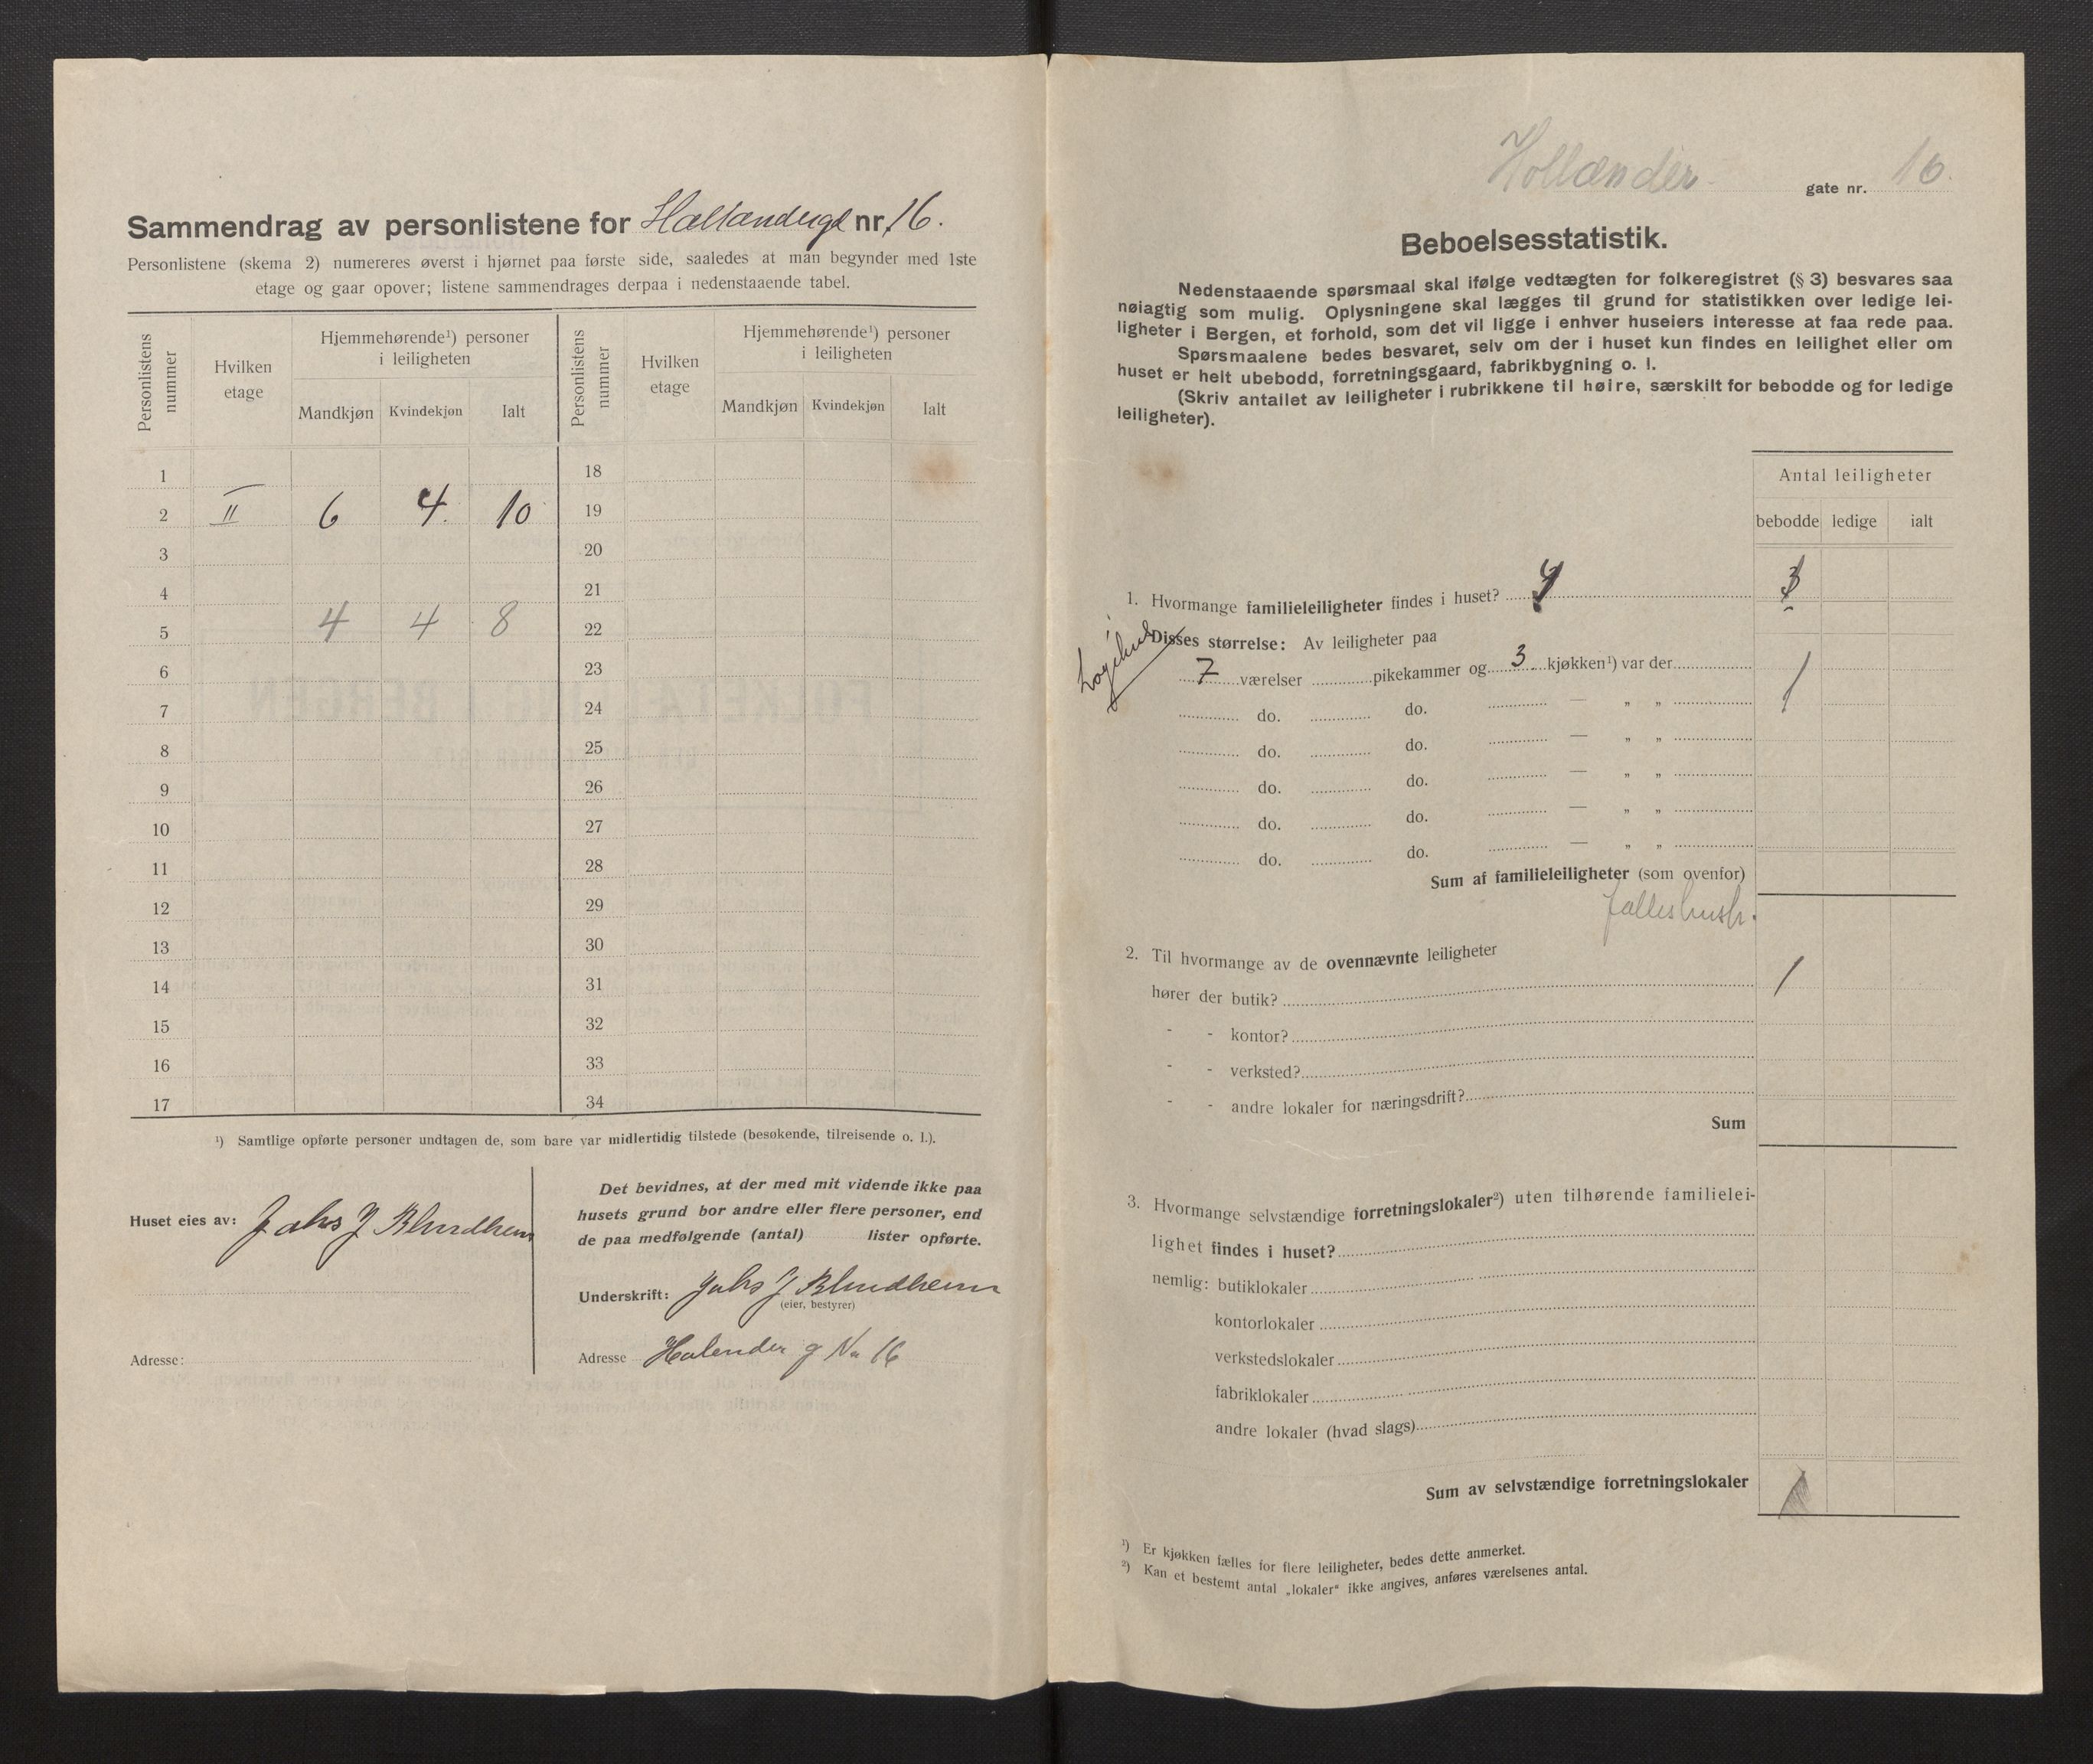 Sammendrag av personlistene for Hallandergt nr. 16.
Personlistene (skema 2) numereres øverst i hjørnet paa første side, saaledes at man begynder med 1ste
etage og gaar opover; listene sammendrages derpaa i nedenstaaende tabel.
Personlistens nummer
Hvilken etage
Hjemmehørende¹) personer i leiligheten
Mandkjøn Kvindekjøn Ialt
Personlistens nummer
Hvilken etage
Hjemmehørende¹) personer i leiligheten
Mandkjøn Kvindekjøn Ialt
1 18
2 II 6 4. 10 19
3 20
4 21
5 4 4 8 22
6 23
7 24
8 25
9 26
10 27
11 28
12 29
13 30
14 31
15 32
16 33
17 34
¹) Samtlige opførte personer undtagen de, som bare var midlertidig tilstede (besøkende, tilreisende o. l.).
Huset eies av: Jahs J Blindheim
Adresse:
Det bevidnes, at der med mit vidende ikke paa
husets grund bor andre eller flere personer, end
de paa medfølgende (antal) lister opførte.
Underskrift: Jahs J Blindheim
(eier, bestyrer)
Adresse Halender g No 16
Hollænder gate nr. 16.
Beboelsesstatistik.
Nedenstaaende spørsmaal skal ifølge vedtægten for folkeregistret (§ 3) besvares saa
nøiagtig som mulig. Oplysningene skal lægges til grund for statistikken over ledige lei-
ligheter i Bergen, et forhold, som det vil ligge i enhver huseiers interesse at faa rede paa.
Spørsmaalene bedes besvaret, selv om der i huset kun findes en leilighet eller om
huset er helt ubebodd, forretningsgaard, fabrikbygning o. l.
(Skriv antallet av leiligheter i rubrikkene til høire, særskilt for bebodde og for ledige
leiligheter).
Antal leiligheter
bebodde ledige ialt
1. Hvormange familieleiligheter findes i huset? 3
Disses størrelse: Av leiligheter paa
7 værelser pikekammer og 3 kjøkken¹) var der 1
do. do. — „ „
do. do. — „ „
do. do. — „ „
do. do. — „ „
do. do. — „ „
Sum af familieleiligheter (som ovenfor)
fælleshush.
2. Til hvormange av de ovennævnte leiligheter
hører der butik? 1
- - kontor?
- - verksted?
- - andre lokaler for næringsdrift?
Sum
3. Hvormange selvstændige forretningslokaler²) uten tilhørende familielei-
lighet findes i huset?
nemlig: butiklokaler
kontorlokaler
verkstedslokaler
fabriklokaler
andre lokaler (hvad slags)
Sum av selvstændige forretningslokaler
¹) Er kjøkken fælles for flere leiligheter, bedes dette anmerket.
²) Kan et bestemt antal „lokaler“ ikke angives, anføres værelsenes antal.